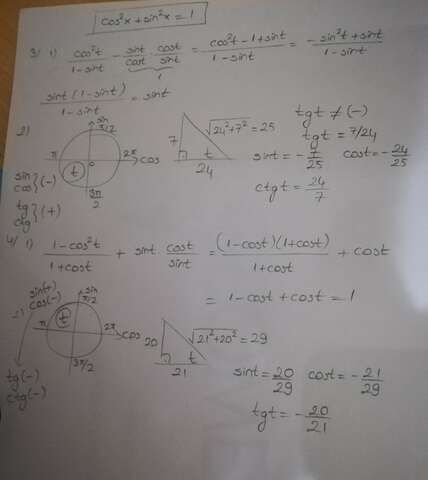 cos²x + sin²x = 1
3/ 1) cos²t/(1-sint) - sint/cost · cost/sint = (cos²t-1+sint)/(1-sint) = (-sin²t+sint)/(1-sint)
1
sint(1-sint)/(1-sint) = sint
2) sin π/2 π 0 2π cos t 3π/2
sin cos } (-)
tg ctg } (+)
7 √24²+7² = 25 t 24
tgt ≠ (-)
tgt = 7/24
sint = -7/25 cost = -24/25
ctgt = 24/7
4/ 1) (1-cos²t)/(1+cost) + sint · cost/sint = (1-cost)(1+cost)/(1+cost) + cost
= 1-cost+cost = 1
sin(+)
cos(-)
sin π/2 t π 2π cos 3π/2
tg(-)
ctg(-)
20 √21²+20² = 29 t 21
sint = 20/29 cost = -21/29
tgt = -20/21